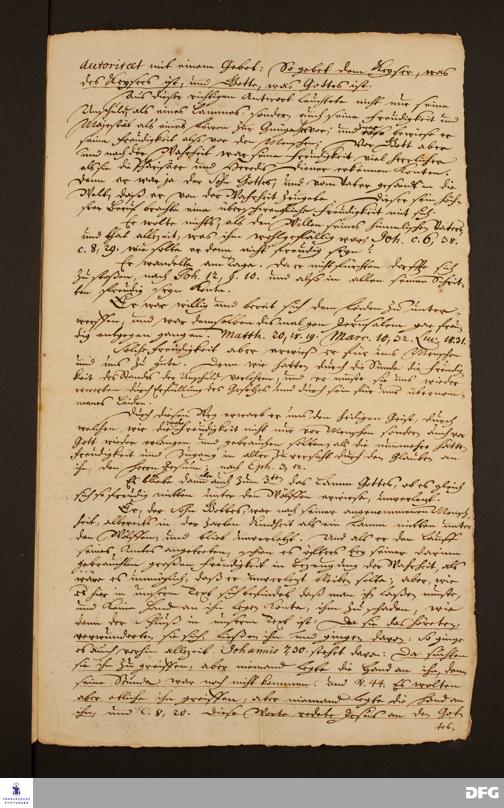 autoritaet mit einem Gebot: So gebet dem Keyser, was
des Keysers ist, und Gotte, was Gottes ist.
Aus dieser richtigen Antwort leuchtete nicht nur seine
Unschuld, als eines Lammes, sondern auch seine Freudigkeit und
Majestät als eines Löwen
seine Freudigkeit als vor den Menschen, Vor Gott aber
und nach der Wahrheit war seine Freudigkeit viel herrlicher
als sie die Phariseer und Herodis Diener erkennen konten.
Denn er war ja der Sohn Gottes, und vom Vater gesandt in die
Welt, daß er von der Wahrheit zeugete. Dieser sein
Beruf brachte eine Freudigkeit mit sich.
Er wolte nichts, als den Willen seines himmlischen Vaters
und that allezeit, was ihm wohlgefällig war. Joh. c. 6, 38.
c. 8, 29. wie solte er denn nicht freudig seyn?
Er wandelte am Tage, da er nicht fürchten durffte sich
zu stoßen, nach Joh. 12, und also in allen seinen Schrit-
ten freudig seyn konte.
Er war willig und bereit sich dem Leiden zu unter-
werffen, und war demselben dismal gen Jerusalem gar freu-
dig entgegen gangen. Matth. 20, 18. 19. Marc. 10, 32. Luc. 18. 31.
Solche Freudigkeit aber erwieß er für uns Menschen
und uns zu gute. Denn wir hatten durch die Sünde die Freudig-
keit des Standes der Unschuld verlohren, und er muste sie uns wieder
erwerben durch Erfüllung des Gesetzes und durch sein für uns übernom-
menes Leiden.
Durch diesen Weg erwarb er uns den heiligen Geist, durch
welchen wir die Freudigkeit nicht nur vor Menschen, sondern auch vor
Gott wieder erlangen und gebrauchen solten, als die nunmehro hätten
Freudigkeit und Zugang in aller Zuversicht durch den Glauben an
ihn, den Herrn Jesum, nach Eph. 3, 12.
Es bleibe dann auch zum 3ten das Lamm Gottes, ob es gleich
sich so freudig mitten unter den Wölffen erwiese, unverletzt.
Er, der Sohn Gottes war nach seiner angenommenen Mensch-
heit, allbereits in der zarten Kindheit als ein Lamm mitten unter
den Wölffen, und blieb unverletzt. Und als er den Lauff
seines Amtes angetreten, schien es öfters bey seiner darinn
gebrauchten großen Freudigkeit in Bezeugung der Wahrheit als
wäre es unmüglich, daß er unverletzt bleiben solte; aber, wie
es hier in unserm Text sich befindet daß man ihn laßen muste,
und keine Hand an ihn legen konte, ihm zu schaden, wie
denn der Schluß in unserm Text ist: Da sie das höreten,
verwunderten sie sich, ließen ihn und gingen davon: So ginge
es auch vorhin allezeit. Johannis 7 30 stehet davon: Da suchten
sie ihn zu greiffen, aber niemand legte die Hand an ihn, denn
seine Stunde war noch nicht kommen. und V. 44. Es wolten
aber etliche ihn greiffen, aber niemand legte die Hand an
ihn, und C. 8, 20. Diese Worte redete Jesus an dem Got-
tes-